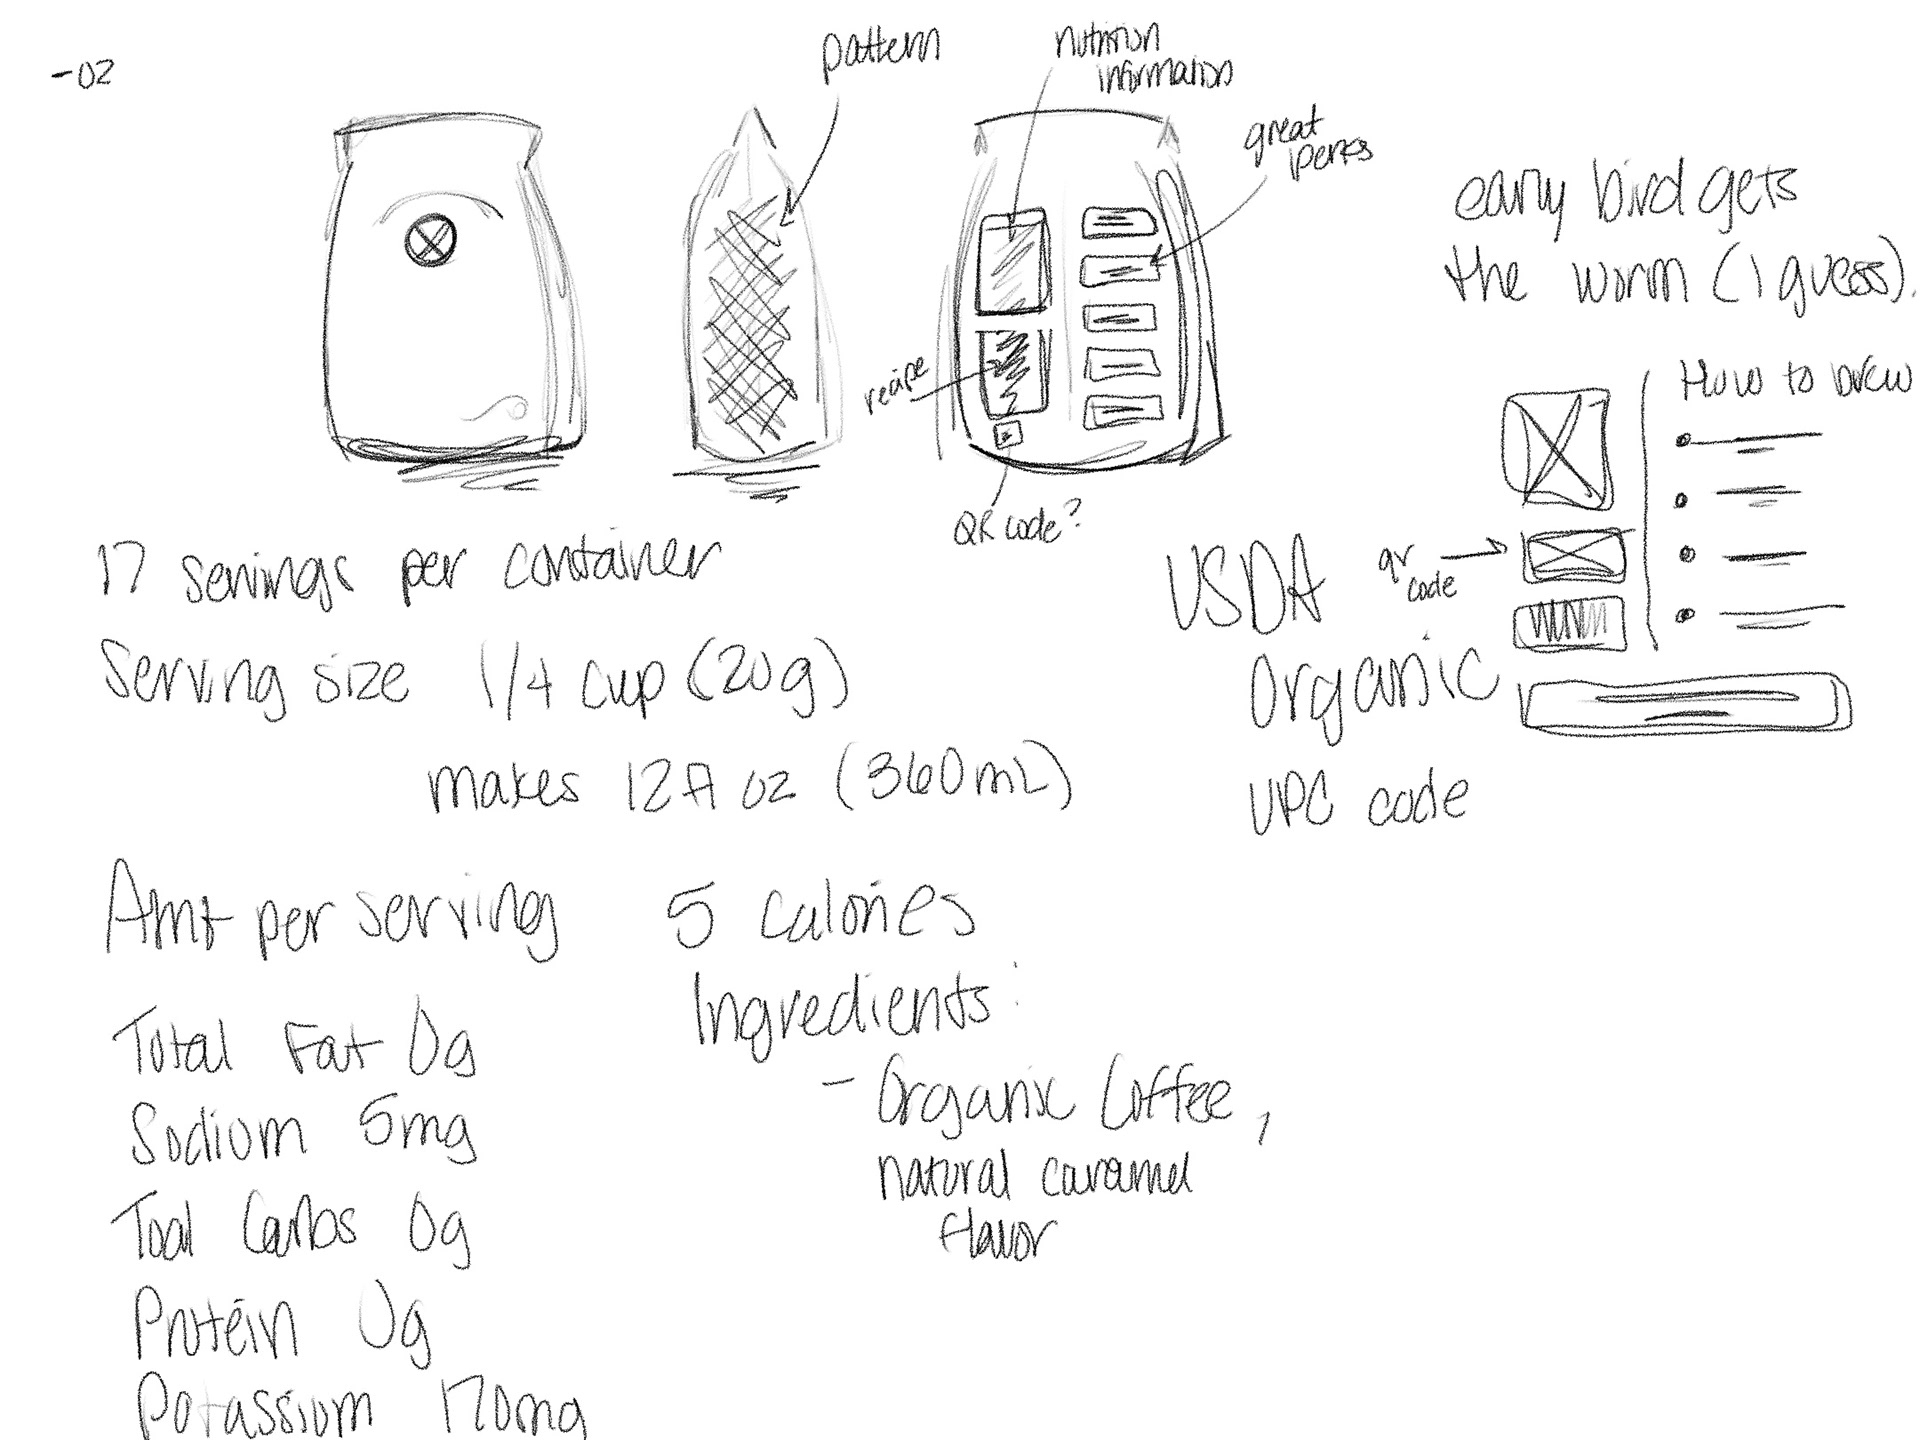 -02
pattern
nutrition
information
great
perks
recipe
QR code?
early bird gets
the worm (I guess).
How to brew
qr
code
17 servings per container
Serving size 1/4 cup (20g)
makes 12 fl oz (360mL)
USDA
Organic
UPC code
Amt per serving 5 Calories
Total Fat 0g
Sodium 5mg
Toal Carbs 0g
Protein 0g
Potassium 170mg
Ingredients:
- Organic Coffee,
natural caramel
flavor